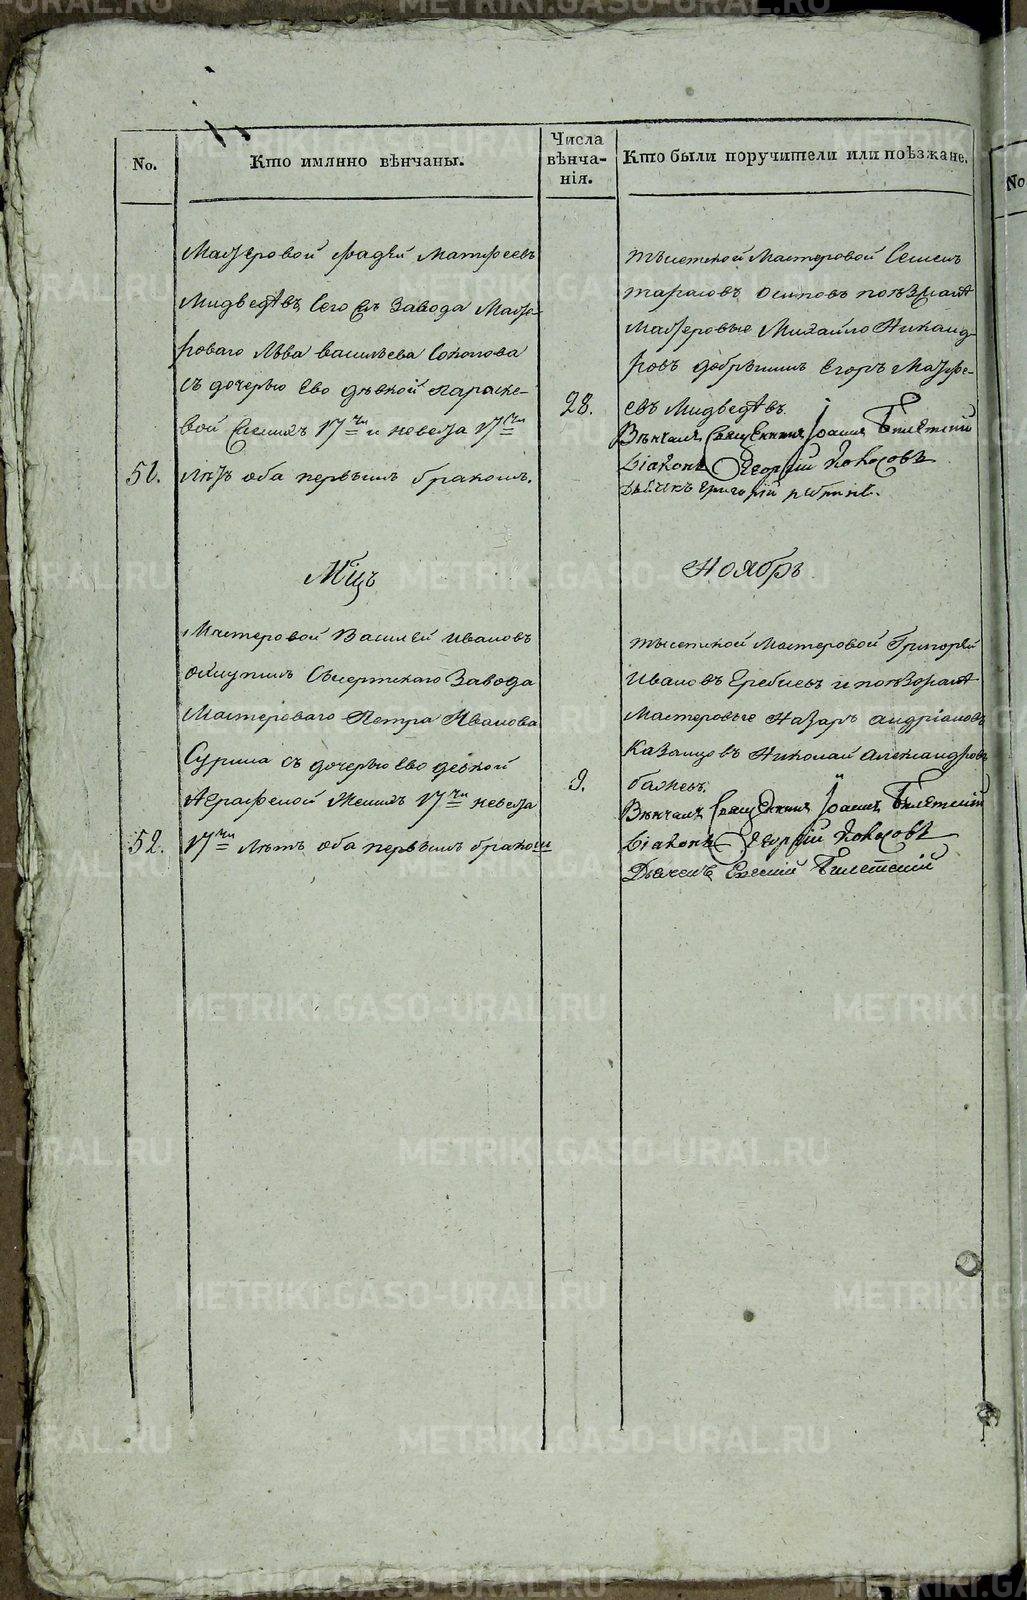 No.
Кто имянно вѣнчаны.
Числа вѣнча-нія.
Кто были поручители или поѣзжане.
No
Мастеровой Фадѣй Матфеевъ
Мидведѣвъ Сего Съ Завода Масте-
роваго Лѣва Васильева Соколова
съ дочерью Ево дѣвкой Параске-
вой Женихъ 17ти и невеста 17ти
51.
лѣтъ оба первымъ бракомъ.
28.
тысетской Мастеровой Семенъ
Тарасовъ Осиповъ поезжанѣ
Мастеровые Михайло Никанд-
ровъ Добрынинъ Егоръ Матфе-
евъ Мидведѣвъ.
Вѣнчалъ Священникъ Іоаннъ Билетскій
Діаконъ Георгій Кокосовъ
Дьячекъ Григорій
Мцъ
Ноябрь
Мастеровой Василей Ивановъ
Сысертскаго Завода
Мастероваго Петра Иванова
Сурина съ дочерью Ево девкой
Аграфеной Женихъ 17ти невеста
52.
17ти Лѣтъ оба первымъ бракомъ
9.
тысетской Мастеровой Григорей
Ивановъ Еребневъ и поезжанѣ
Мастеровые Назаръ Андріановъ
Казанцовъ Николай Александровъ
Баженъ.
Вѣнчалъ Священникъ Іоаннъ Билетскій
Діаконъ Георгій Кокосовъ
Дьячекъ Евгеній Билетскій
METRIKI.GASO-URAL.RU